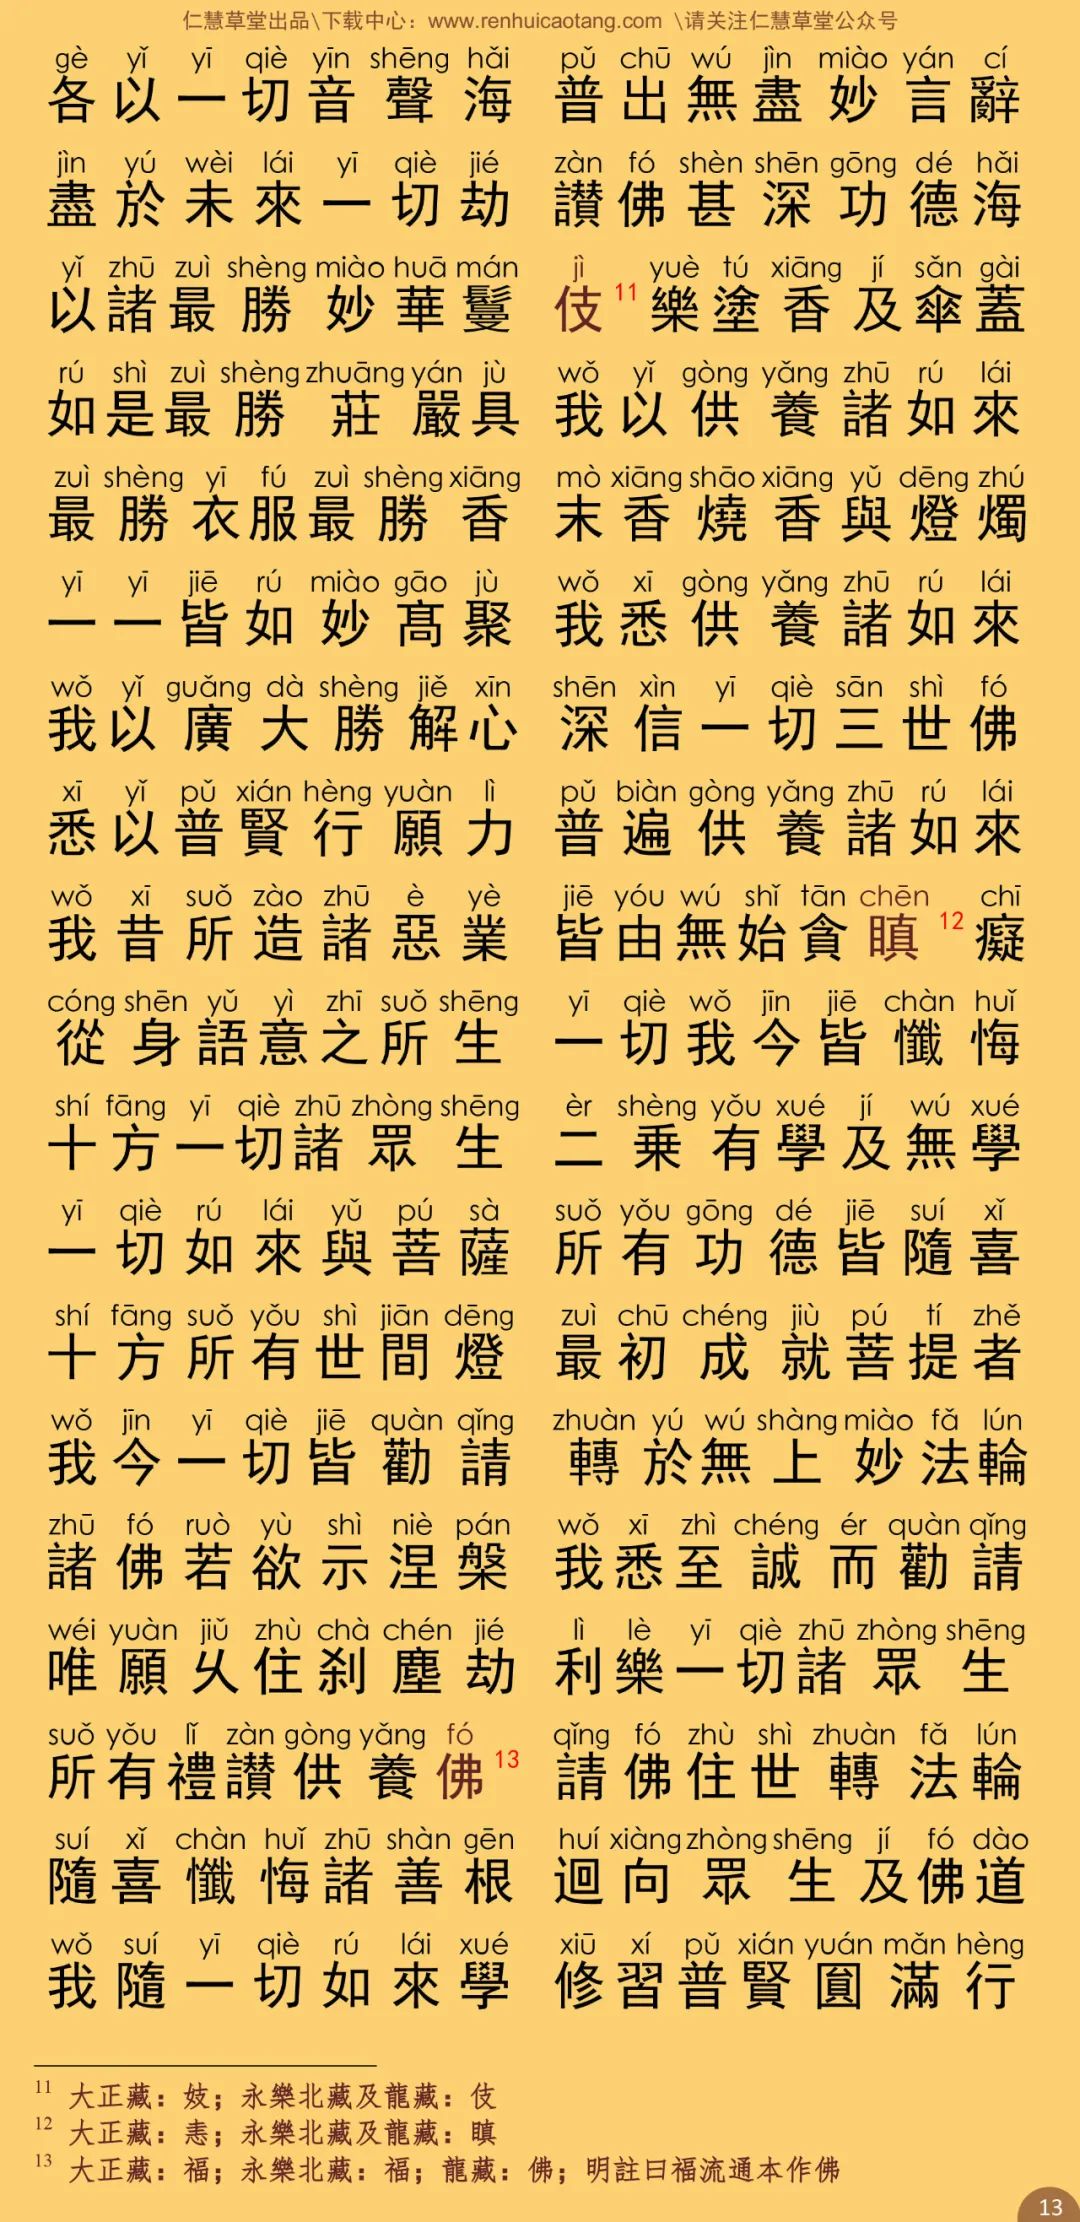 仁慧草堂出品\下载中心：www.renhuicaotang.com \请关注仁慧草堂公众号
gè yǐ yī qiè yīn shēng hǎi pǔ chū wú jìn miào yán cí
各以一切音聲海 普出無盡妙言辭
jìn yú wèi lái yī qiè jié zàn fó shèn shēn gōng dé hǎi
盡於未來一切劫 讚佛甚深功德海
yǐ zhū zuì shèng miào huā mán jì yuè tú xiāng jí sǎn gài
以諸最勝妙華鬘 伎11樂塗香及傘蓋
rú shì zuì shèng zhuāng yán jù wǒ yǐ gòng yǎng zhū rú lái
如是最勝莊嚴具 我以供養諸如來
zuì shèng yī fú zuì shèng xiāng mò xiāng shāo xiāng yǔ dēng zhú
最勝衣服最勝香 末香燒香與燈燭
yī yī jiē rú miào gāo jù wǒ xī gòng yǎng zhū rú lái
一一皆如妙髙聚 我悉供養諸如來
wǒ yǐ guǎng dà shèng jiě xīn shēn xìn yī qiè sān shì fó
我以廣大勝解心 深信一切三世佛
xī yǐ pǔ xián hèng yuàn lì pǔ biàn gòng yǎng zhū rú lái
悉以普賢行願力 普遍供養諸如來
wǒ xī suǒ zào zhū è yè jiē yóu wú shǐ tān chēn chī
我昔所造諸惡業 皆由無始貪瞋12癡
cóng shēn yǔ yì zhī suǒ shēng yī qiè wǒ jīn jiē chàn huǐ
從身語意之所生 一切我今皆懺悔
shí fāng yī qiè zhū zhòng shēng èr shèng yǒu xué jí wú xué
十方一切諸眾生 二乗有學及無學
yī qiè rú lái yǔ pú sà suǒ yǒu gōng dé jiē suí xǐ
一切如來與菩薩 所有功德皆隨喜
shí fāng suǒ yǒu shì jiān dēng zuì chū chéng jiù pú tí zhě
十方所有世間燈 最初成就菩提者
wǒ jīn yī qiè jiē quàn qǐng zhuàn yú wú shàng miào fǎ lún
我今一切皆勸請 轉於無上妙法輪
zhū fó ruò yù shì niè pán wǒ xī zhì chéng ér quàn qǐng
諸佛若欲示涅槃 我悉至誠而勸請
wéi yuàn jiǔ zhù chà chén jié lì lè yī qiè zhū zhòng shēng
唯願乆住刹塵劫 利樂一切諸眾生
suǒ yǒu lǐ zàn gòng yǎng fó qǐng fó zhù shì zhuàn fǎ lún
所有禮讚供養佛13 請佛住世轉法輪
suí xǐ chàn huǐ zhū shàn gēn huí xiàng zhòng shēng jí fó dào
隨喜懺悔諸善根 迴向眾生及佛道
wǒ suí yī qiè rú lái xué xiū xí pǔ xián yuán mǎn hèng
我隨一切如來學 修習普賢圓滿行
11 大正藏：妓；永樂北藏及龍藏：伎
12 大正藏：恚；永樂北藏及龍藏：瞋
13 大正藏：福；永樂北藏：福；龍藏：佛；明註曰福流通本作佛
13